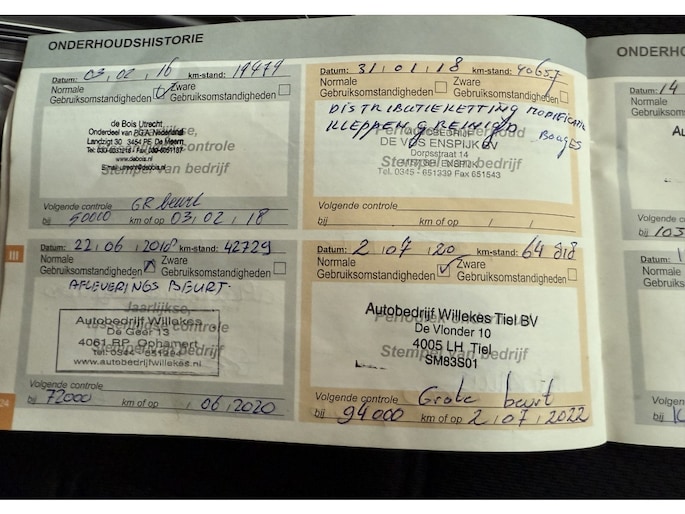 ONDERHOUDSHISTORIE
Datum: 03, 02, 16 km-stand: 19479
Normale Gebruiksomstandigheden
Zware Gebruiksomstandigheden
de Bois Utrecht,
Onderdeel van P.G.A. Nederland
Landzigt 30 3454 PE De Meern
www.debois.nl
Stempel van bedrijf
Volgende controle GR beurt
bij 50000 km of op 03, 02, 18
Datum: 31, 01, 18 km-stand: 40657
Normale Gebruiksomstandigheden
Zware Gebruiksomstandigheden
DISTRIBUTIEKETTING MODIFICATIE
KLEPPEN GEREINIGD BOUGES
DE VOS ENSPIJK BV
Dorpsstraat 14
Tel. 0345 - 651339 Fax 651543
Stempel van bedrijf
Volgende controle
bij km of op / /
Datum: 22, 06, 2018 km-stand: 42729
Normale Gebruiksomstandigheden
Zware Gebruiksomstandigheden
AFLEVERINGS BEURT.
Jaarlijkse,
tussentijdse controle
Stempel van bedrijf
Autobedrijf Willekes
De Geer 13
4061 RP Ophemert
www.autobedrijfwillekes.nl
Volgende controle
bij 72000 km of op , 06, 2020
Datum: 2, 07, 20 km-stand: 64 818
Normale Gebruiksomstandigheden
Zware Gebruiksomstandigheden
Autobedrijf Willekes Tiel BV
De Vlonder 10
4005 LH Tiel
SM83S01
Stempel van bedrijf
Volgende controle Grote beurt
bij 94000 km of op 2, 07, 2022
III
24
ONDERHO
Datum: 14
Normale
Gebruiksom
Volgende co
bij 105
Datum:
Normale
Gebruiksom
Volgende
bij